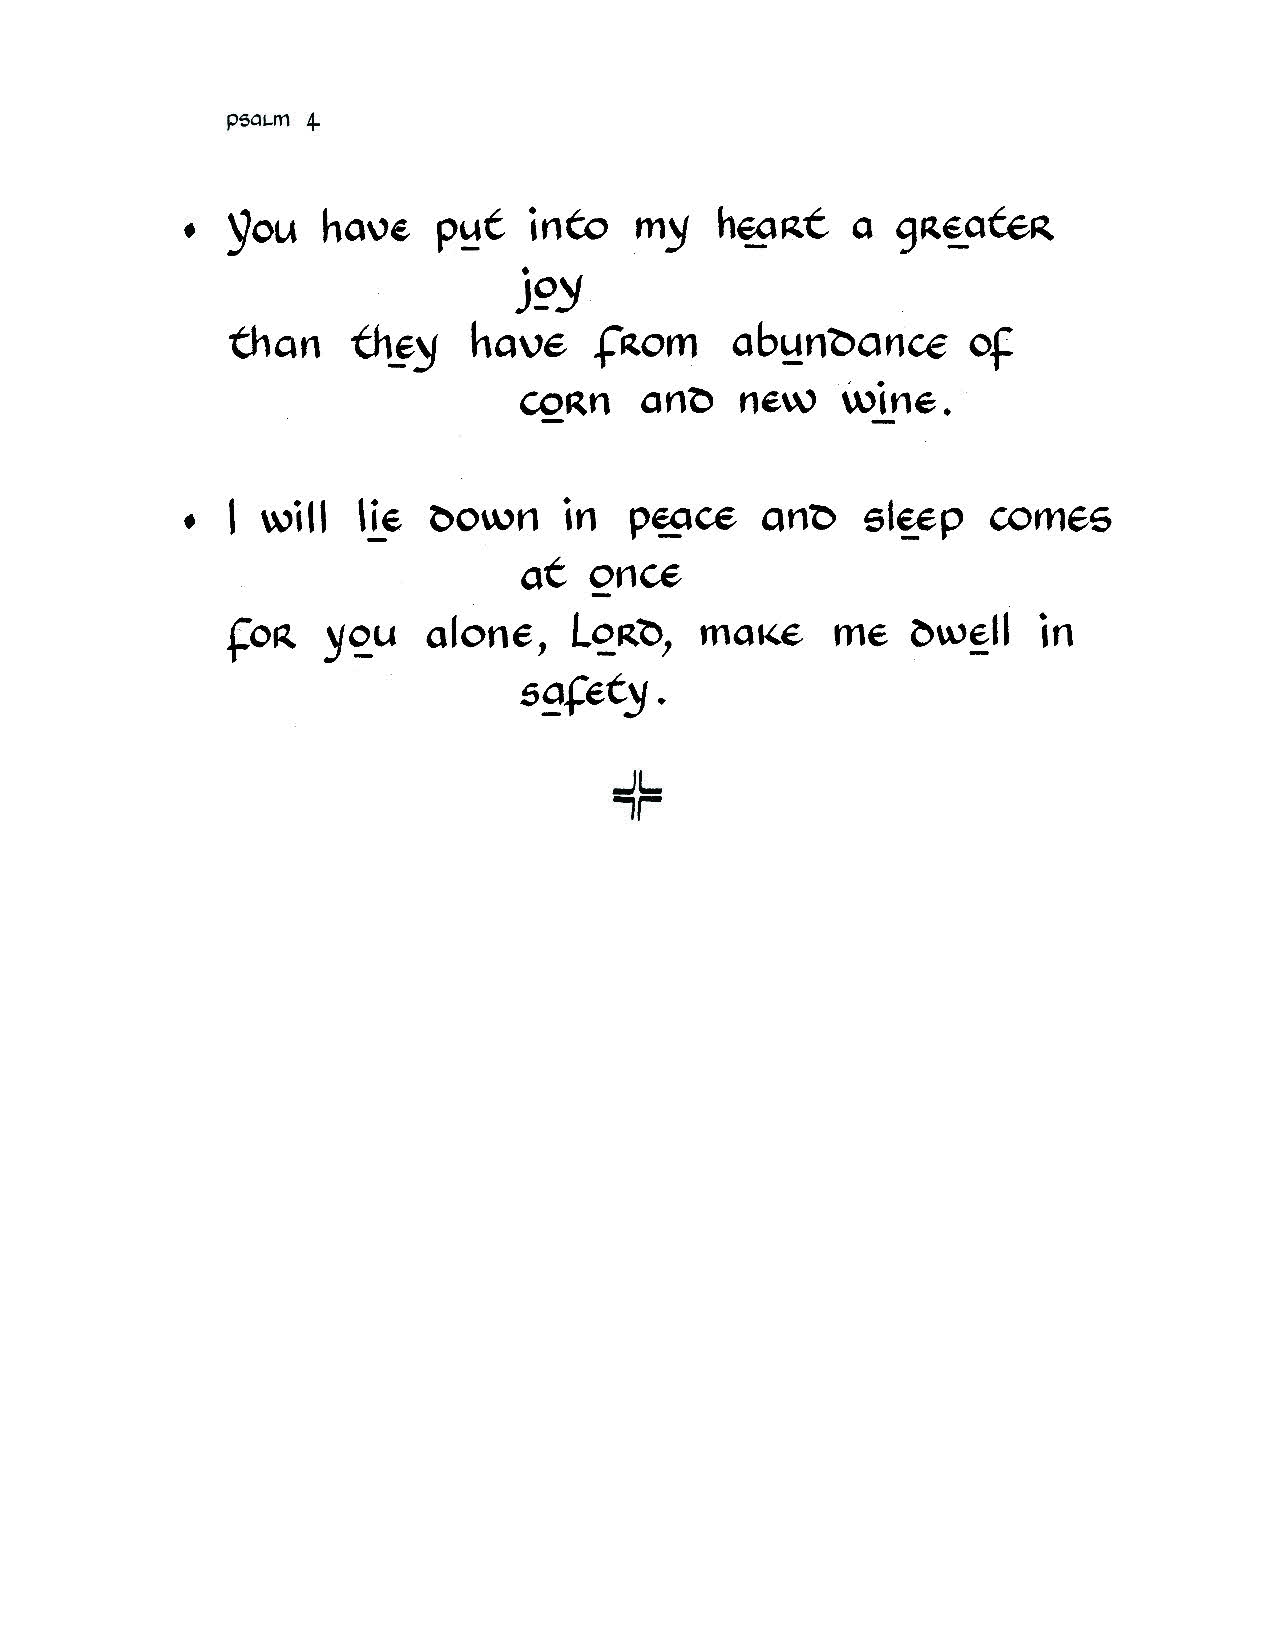 psalm 4
• You have put into my heart a greater
joy
than they have from abundance of
corn and new wine.
• I will lie down in peace and sleep comes
at once
for you alone, Lord, make me dwell in
safety.